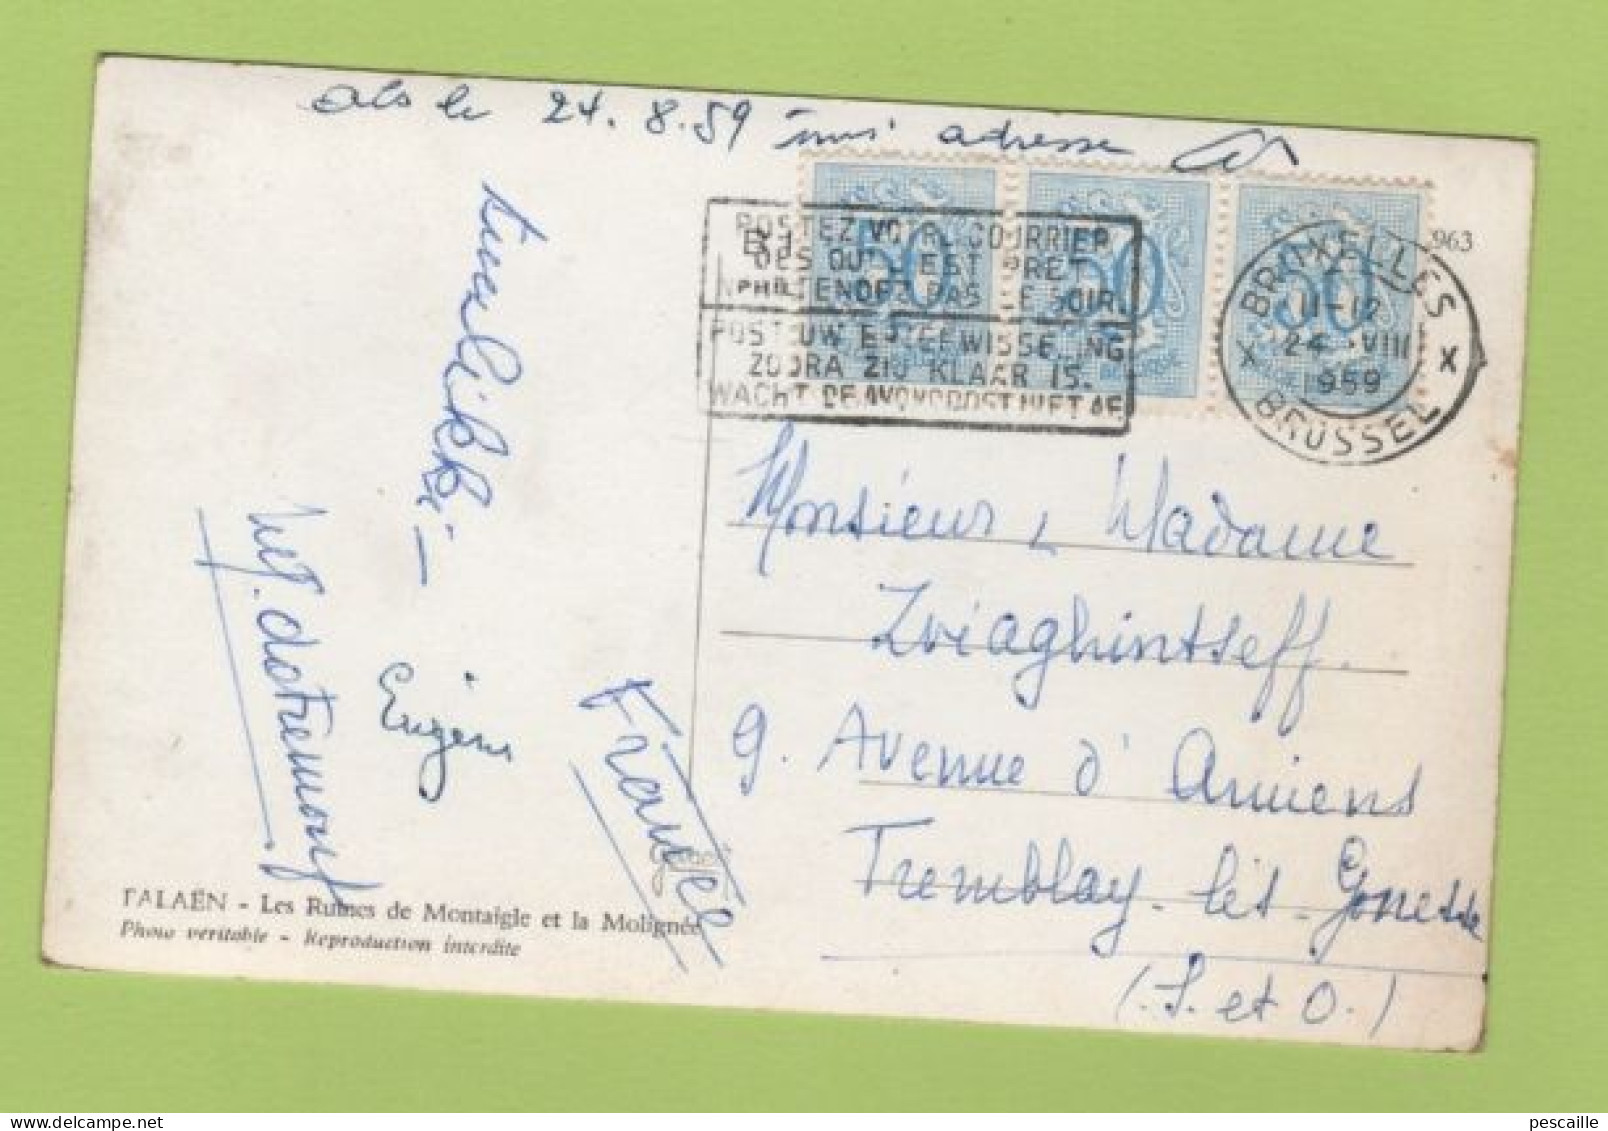 le 24.8.59 adresse
963
POSTEZ VOTRE COURRIER
DES QU'IL EST PRET
N'ATTENDEZ PAS LE SOIR
POST UW BRIEFWISSELING
ZODRA ZIJ KLAAR IS.
WACHT DE AVONDPOST NIET AF
50 50 50
BRUXELLES
11-12
24 VIII
1959
BRUSSEL
Monsieur, Madame
Zviaghintseff.
9. Avenue d'Amiens
Tremblay-lès-Gonesse
(S. et O.)
France
Eugène
M. dotremont
FALAËN - Les Ruines de Montaigle et la Molignée
Photo véritable - Reproduction interdite
pescaille